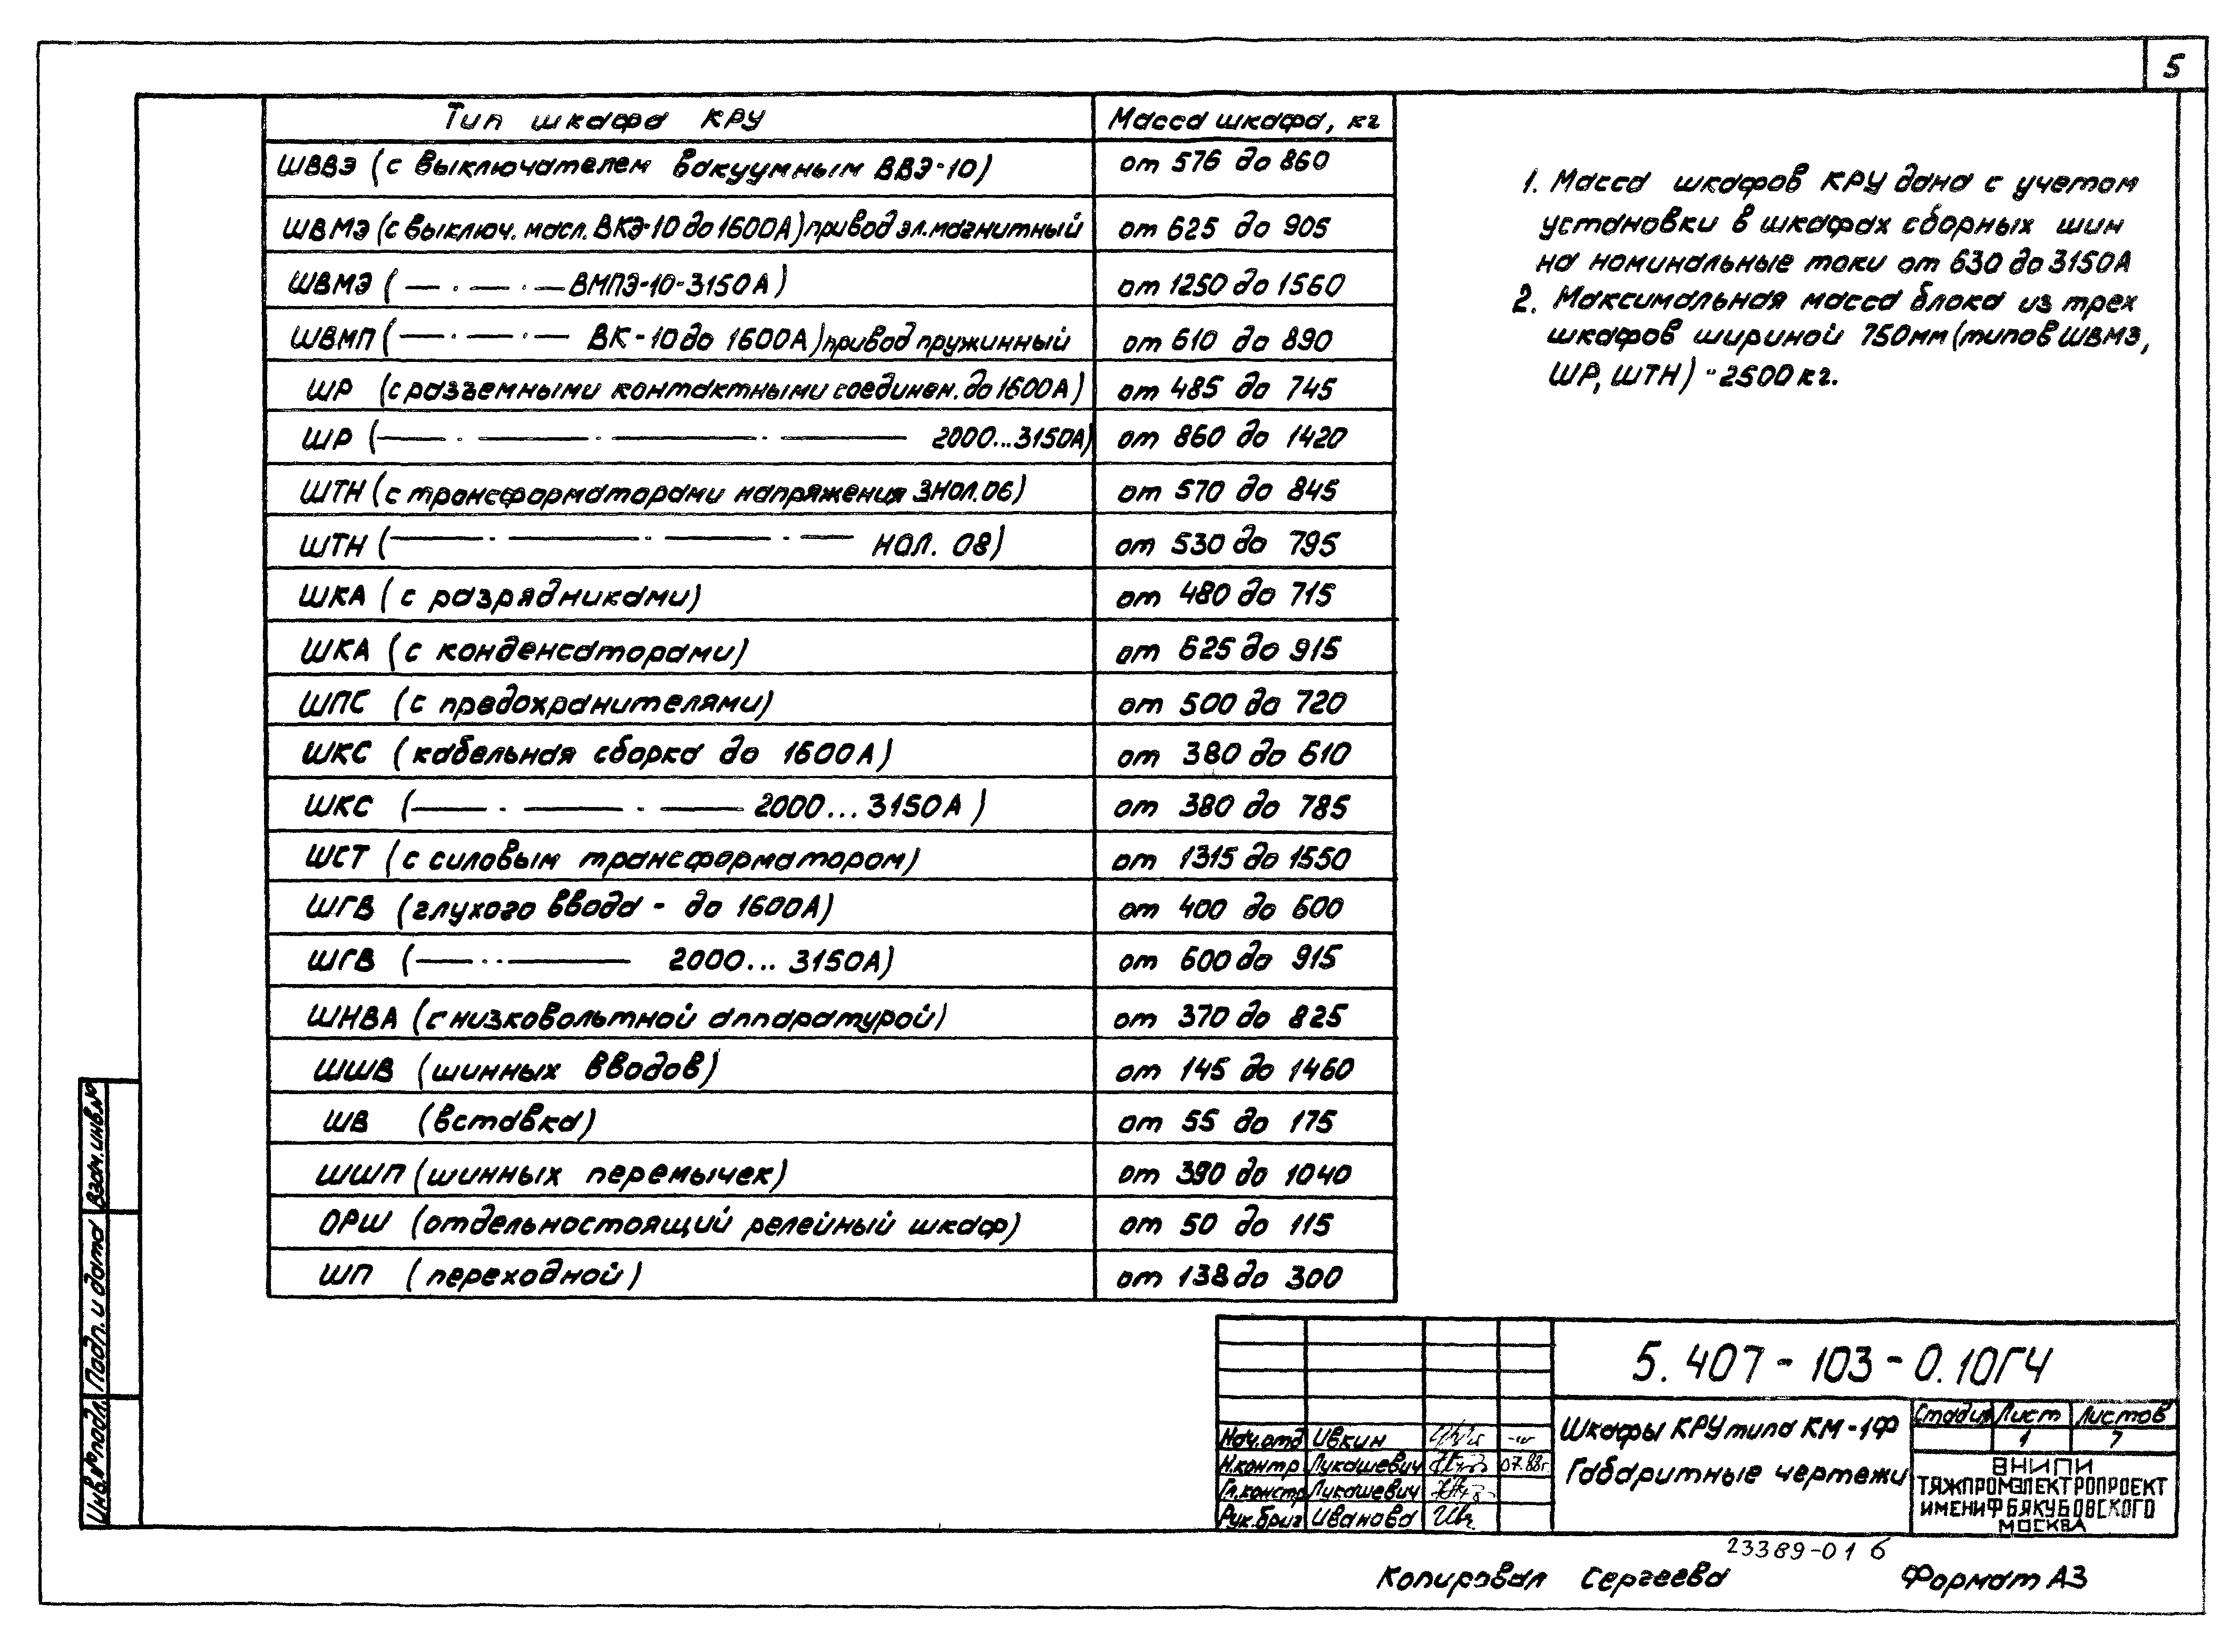 5
Тип шкафа КРУ Масса шкафа, кг
ШВВЭ (с выключателем вакуумным ВВЭ-10) от 576 до 860
ШВМЭ (с выключ. масл. ВКЭ-10 до 1600А) привод эл.магнитный от 625 до 905
ШВМЭ (— · — · — ВМПЭ-10-3150А) от 1250 до 1560
ШВМП (— · — · — ВК-10 до 1600А) привод пружинный от 610 до 890
ШР (с разъемными контактными соединен. до 1600А) от 485 до 745
ШР (— · — · — · — 2000...3150А) от 860 до 1420
ШТН (с трансформаторами напряжения ЗНОЛ.06) от 570 до 845
ШТН (— · — · — · — НОЛ. 08) от 530 до 795
ШКА (с разрядниками) от 480 до 715
ШКА (с конденсаторами) от 625 до 915
ШПС (с предохранителями) от 500 до 720
ШКС (кабельная сборка до 1600А) от 380 до 610
ШКС (— · — · — 2000...3150А) от 380 до 785
ШСТ (с силовым трансформатором) от 1315 до 1550
ШГВ (глухого ввода - до 1600А) от 400 до 600
ШГВ (— · · — 2000... 3150А) от 600 до 915
ШНВА (с низковольтной аппаратурой) от 370 до 825
ШШВ (шинных вводов) от 145 до 1460
ШВ (вставка) от 55 до 175
ШШП (шинных перемычек) от 390 до 1040
ОРШ (отдельностоящий релейный шкаф) от 50 до 115
ШП (переходной) от 138 до 300
1. Масса шкафов КРУ дана с учетом
установки в шкафах сборных шин
на номинальные токи от 630 до 3150А
2. Максимальная масса блока из трех
шкафов шириной 750мм (типов ШВМЭ,
ШР, ШТН) - 2500 кг.
Взам.инв.№
Подп. и дата
Инв.№подл.
5.407-103-0.10ГЧ
Шкафы КРУ типа КМ-1Ф
Габаритные чертежи
Стадия Лист Листов
1 7
Нач.отд Ивкин
Н.контр Лукашевич 07.88г.
Гл.констр Лукашевич
Рук.бриг Иванова
ВНИПИ
ТЯЖПРОМЭЛЕКТРОПРОЕКТ
ИМЕНИ Ф Б ЯКУБОВСКОГО
МОСКВА
23389-01 6
Копировал Сергеева Формат А3